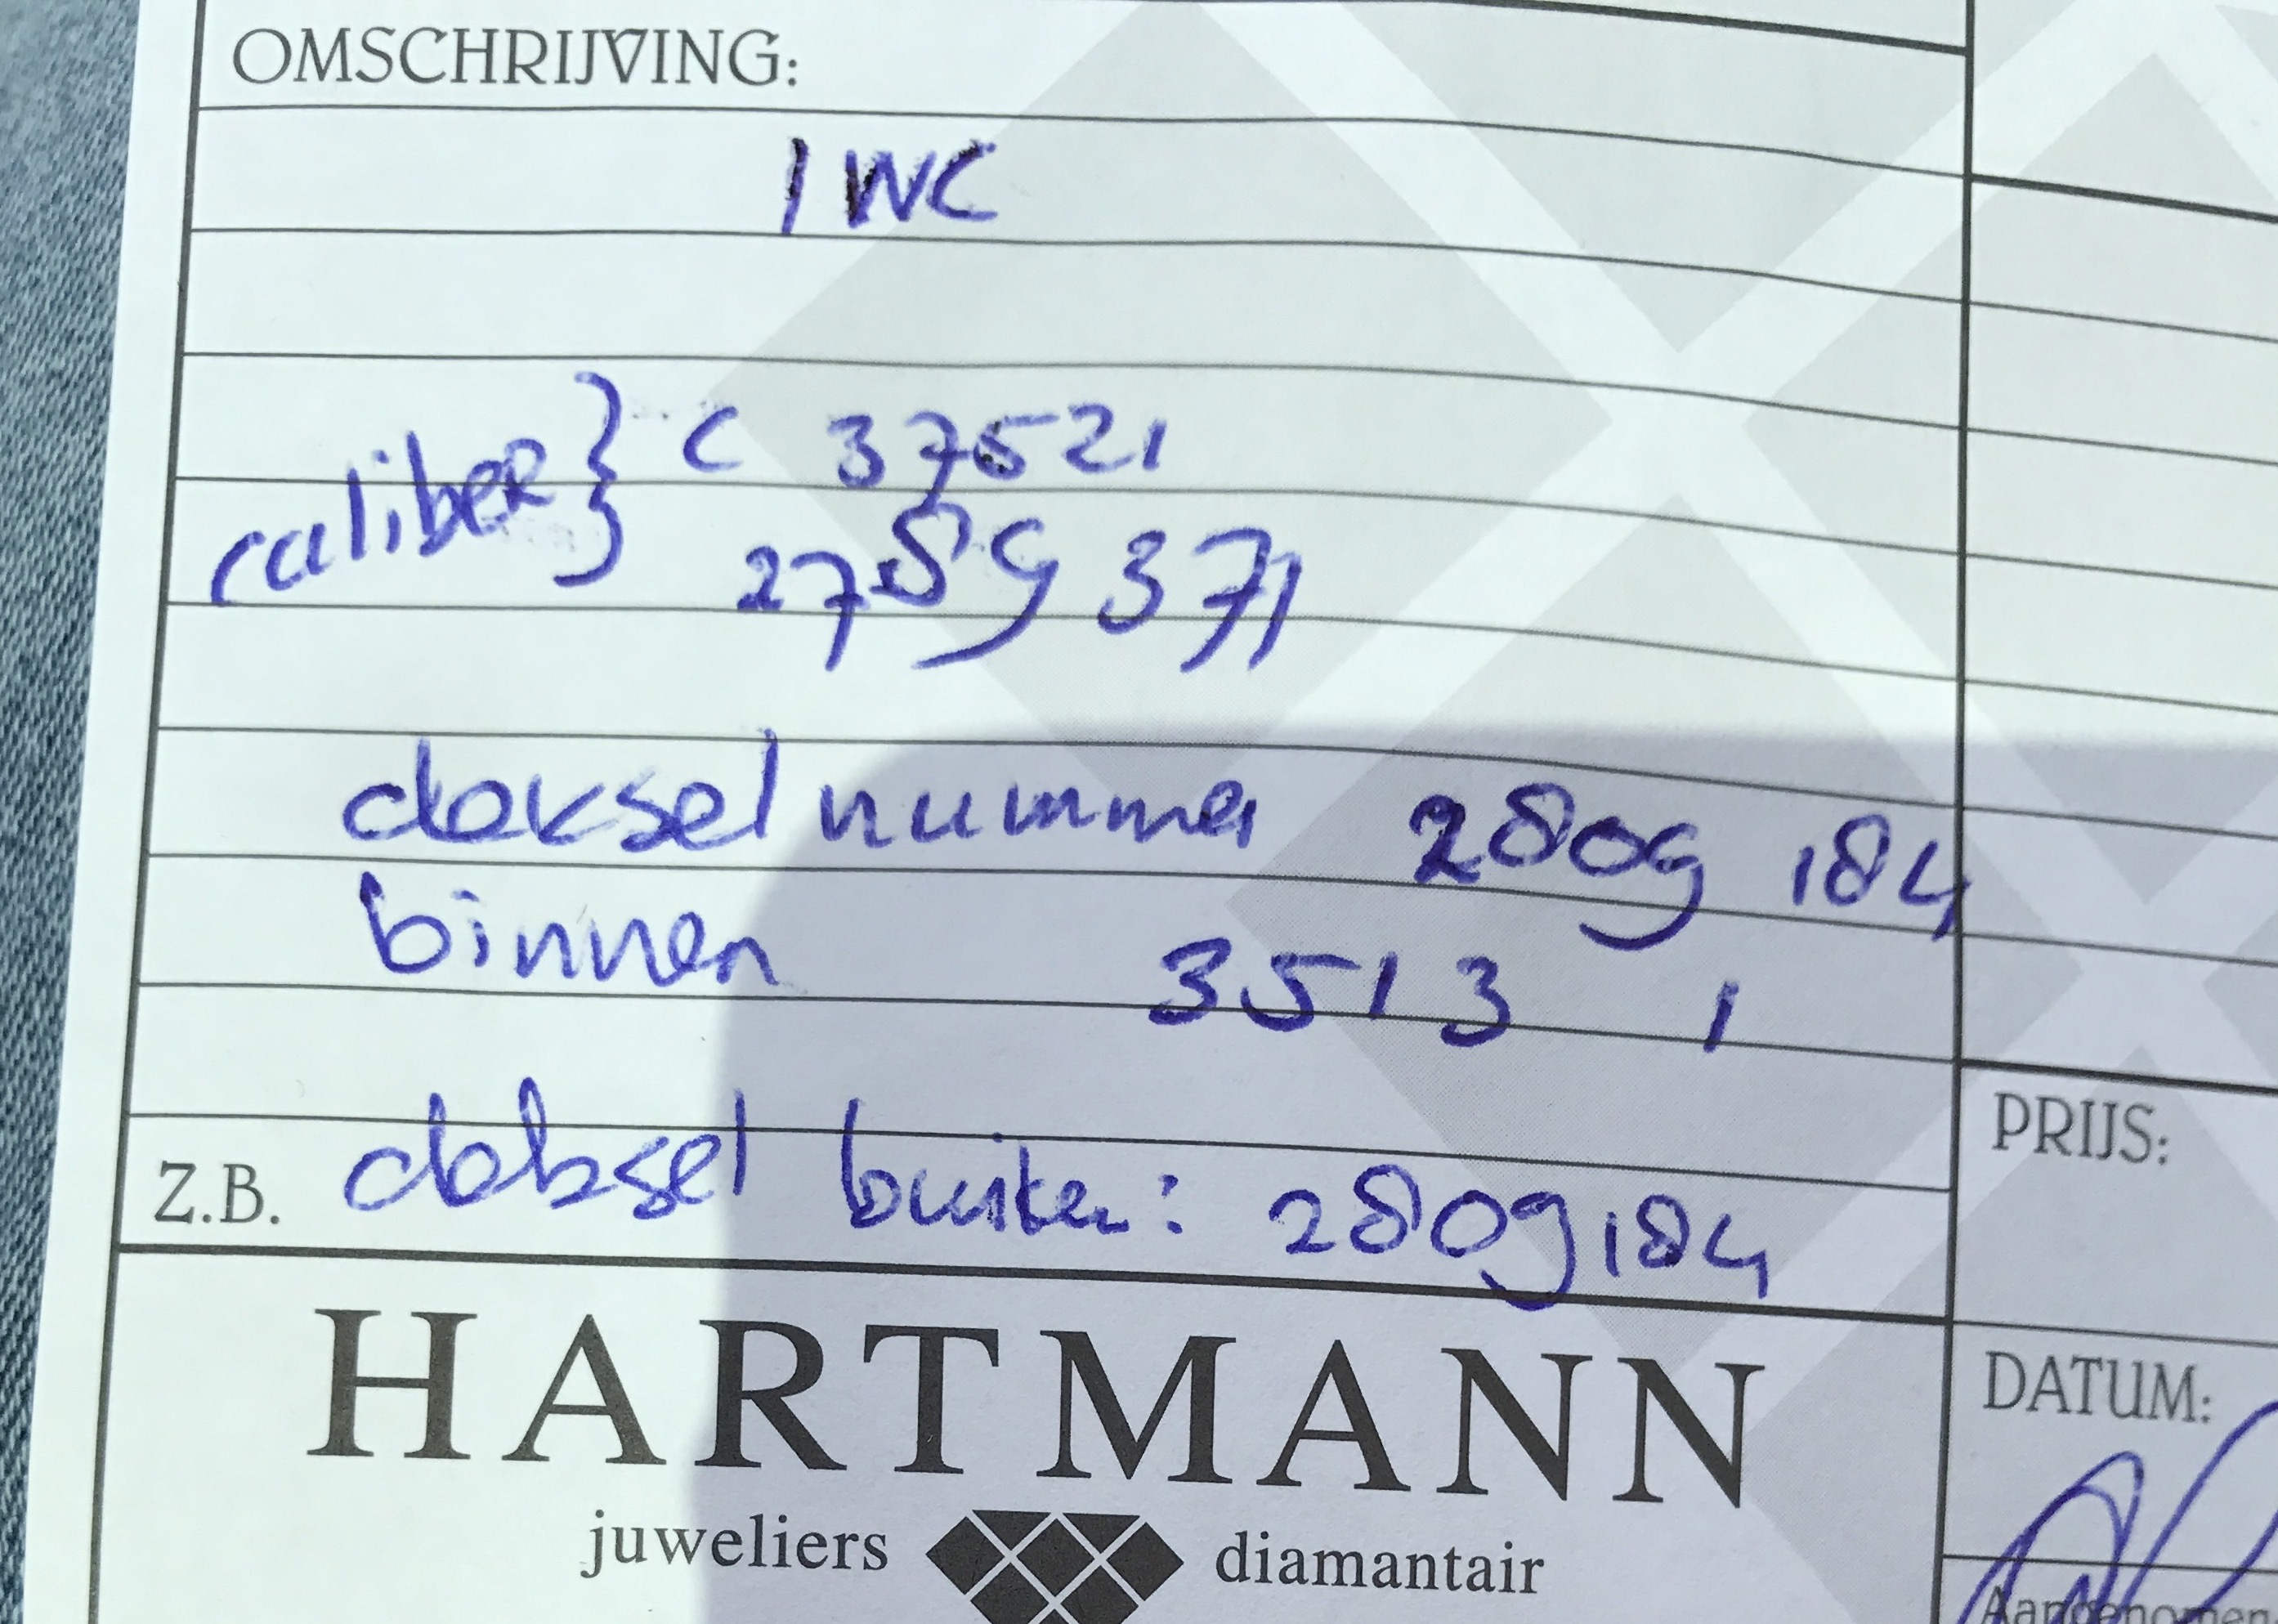 OMSCHRIJVING:
IWC
caliber } C 37521
2789 371
deksel nummer 2809 184
binnen 3513 1
PRIJS:
Z.B. deksel buiten: 2809184
HARTMANN
DATUM:
juweliers diamantair
Aangenomen